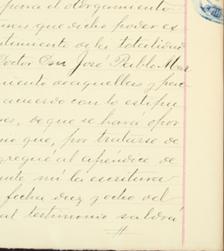 para el otorgamiento
mas que dicho poder es
strumento de la totalidad
Doctor Don José Pablo Mar
miento de aquellas y para
acuerdo con lo estipu
es, de que se hará por
no que, por tratarse de
gregue al apéndice de
ante mí la escritura
fecha diez y ocho del
al testimonio saldrá